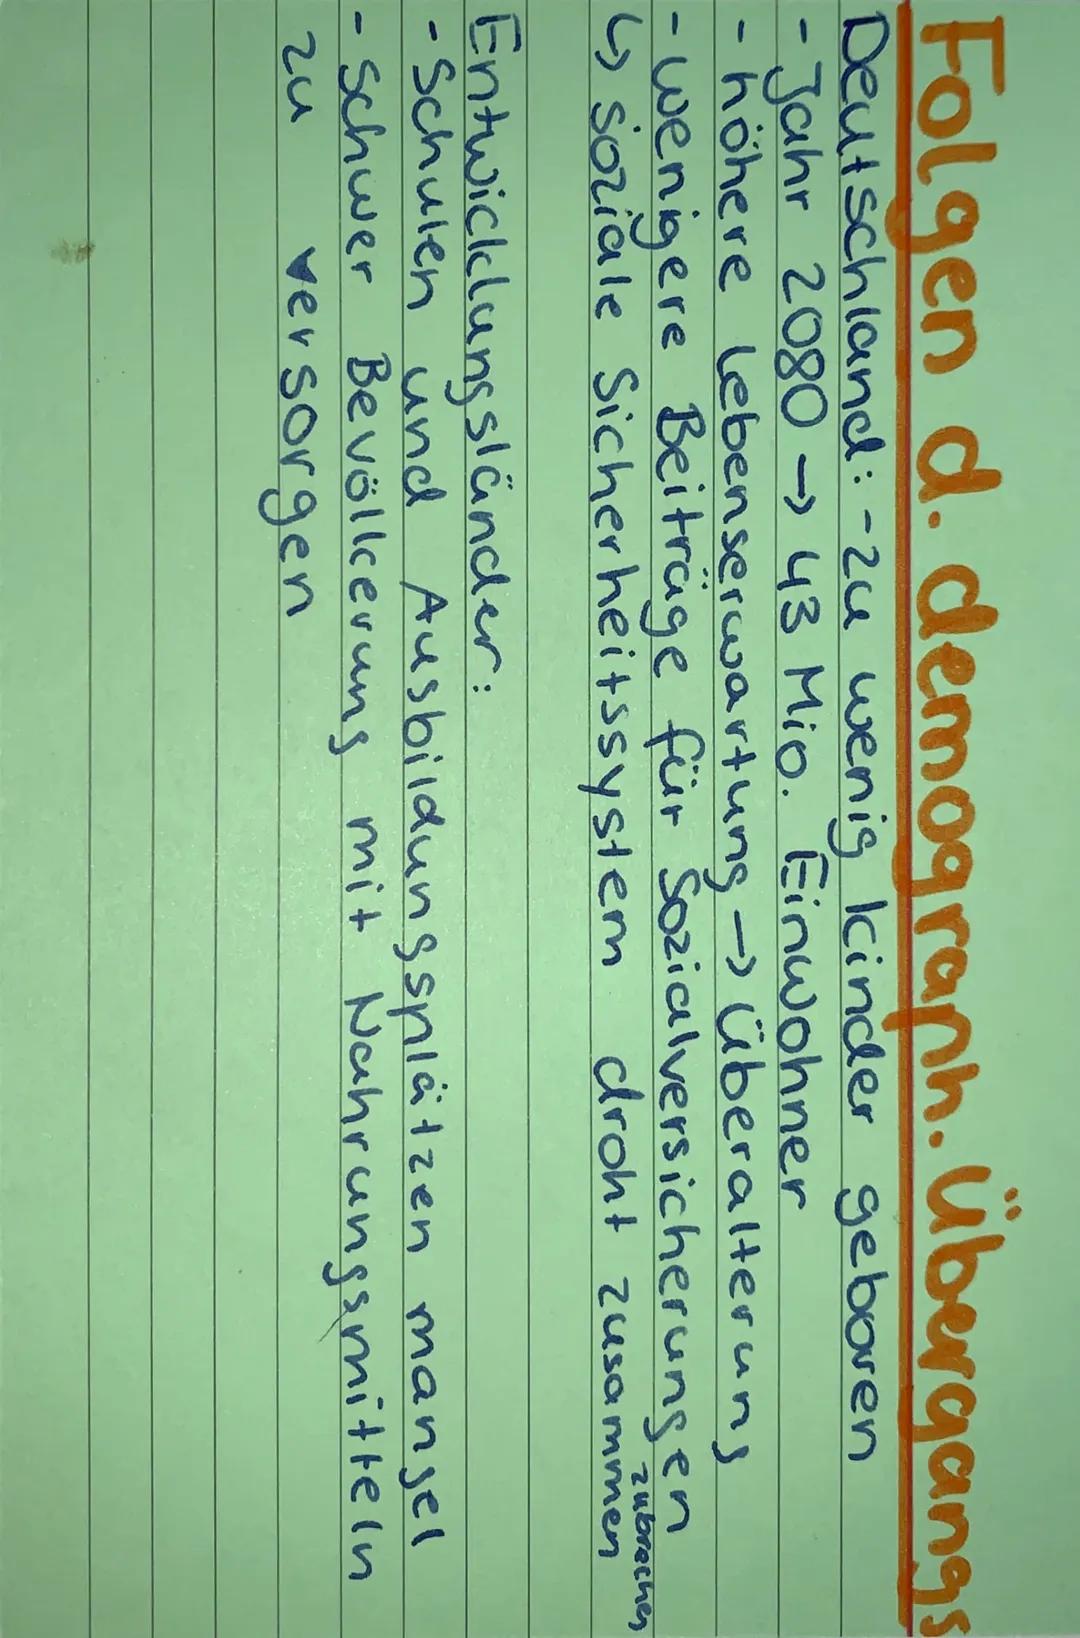 Folgen d. demograph. Übergangs
Deutschland: - zu wenig kinder geboren
- Jahr 2080 → 43 Mio. Einwohner
- höhere Lebenserwartung → Überalterung
- wenigere Beiträge für Sozialversicherungen
↳ soziale Sicherheitssystem droht zusammen
zubrechen
Entwicklungsländer:
- Schulen und Ausbildungsplätzen mangel
- Schwer Bevölkerung mit Nahrungsmitteln
zu versorgen